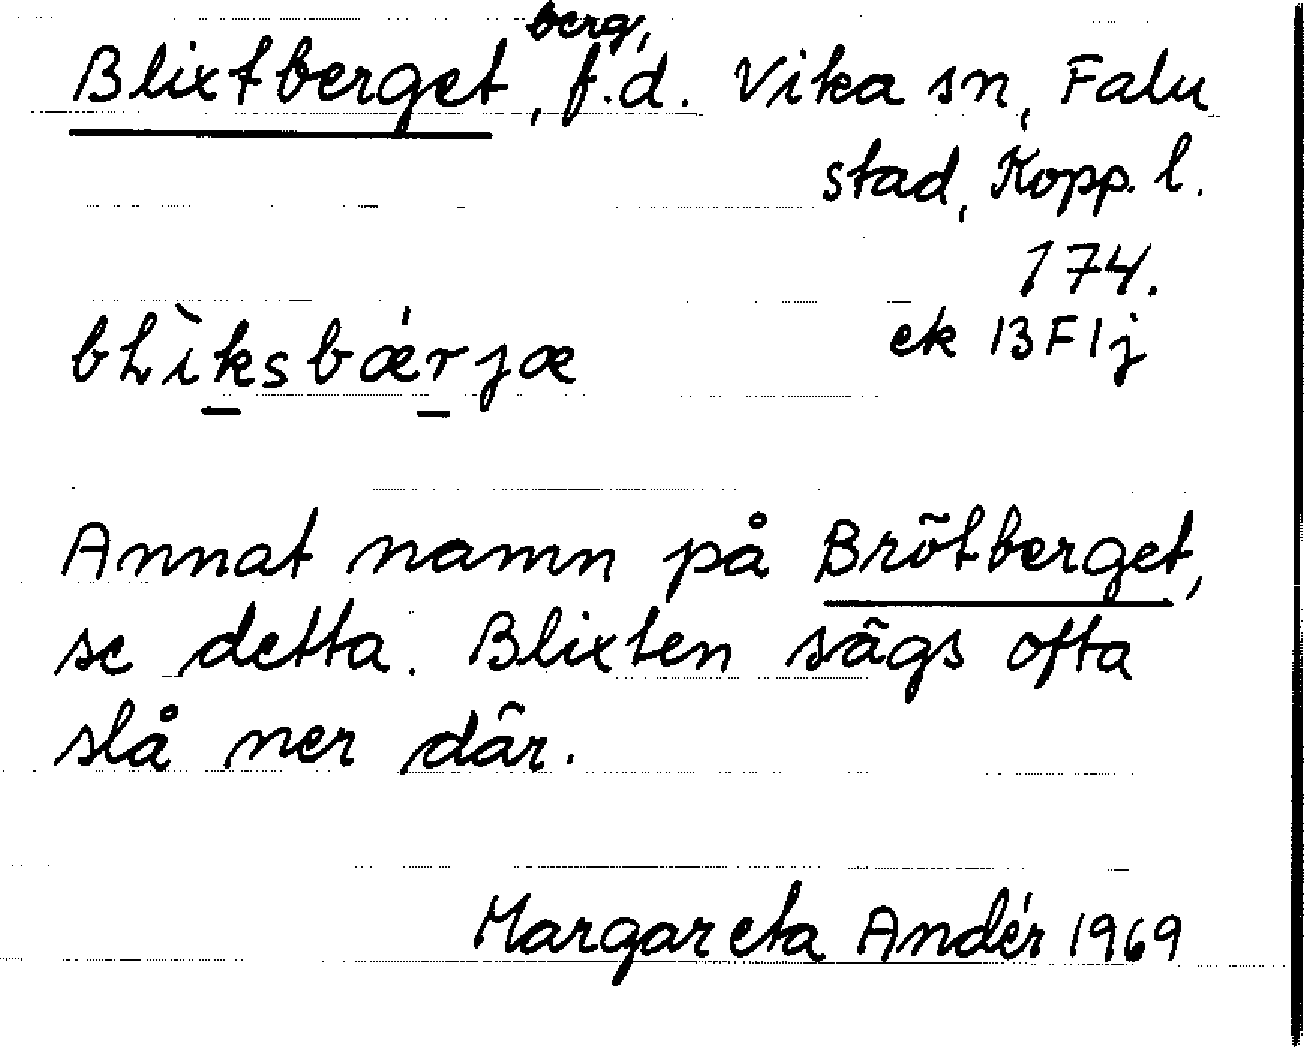 Blixtberget, berg, f.d. Vika sn, Falu
stad, Kopp. l.
174.
ek 13F1j
bLìksbǽrjæ
Annat namn på Brötberget,
se detta. Blixten sägs ofta
slå ner där.
Margareta Andér 1969